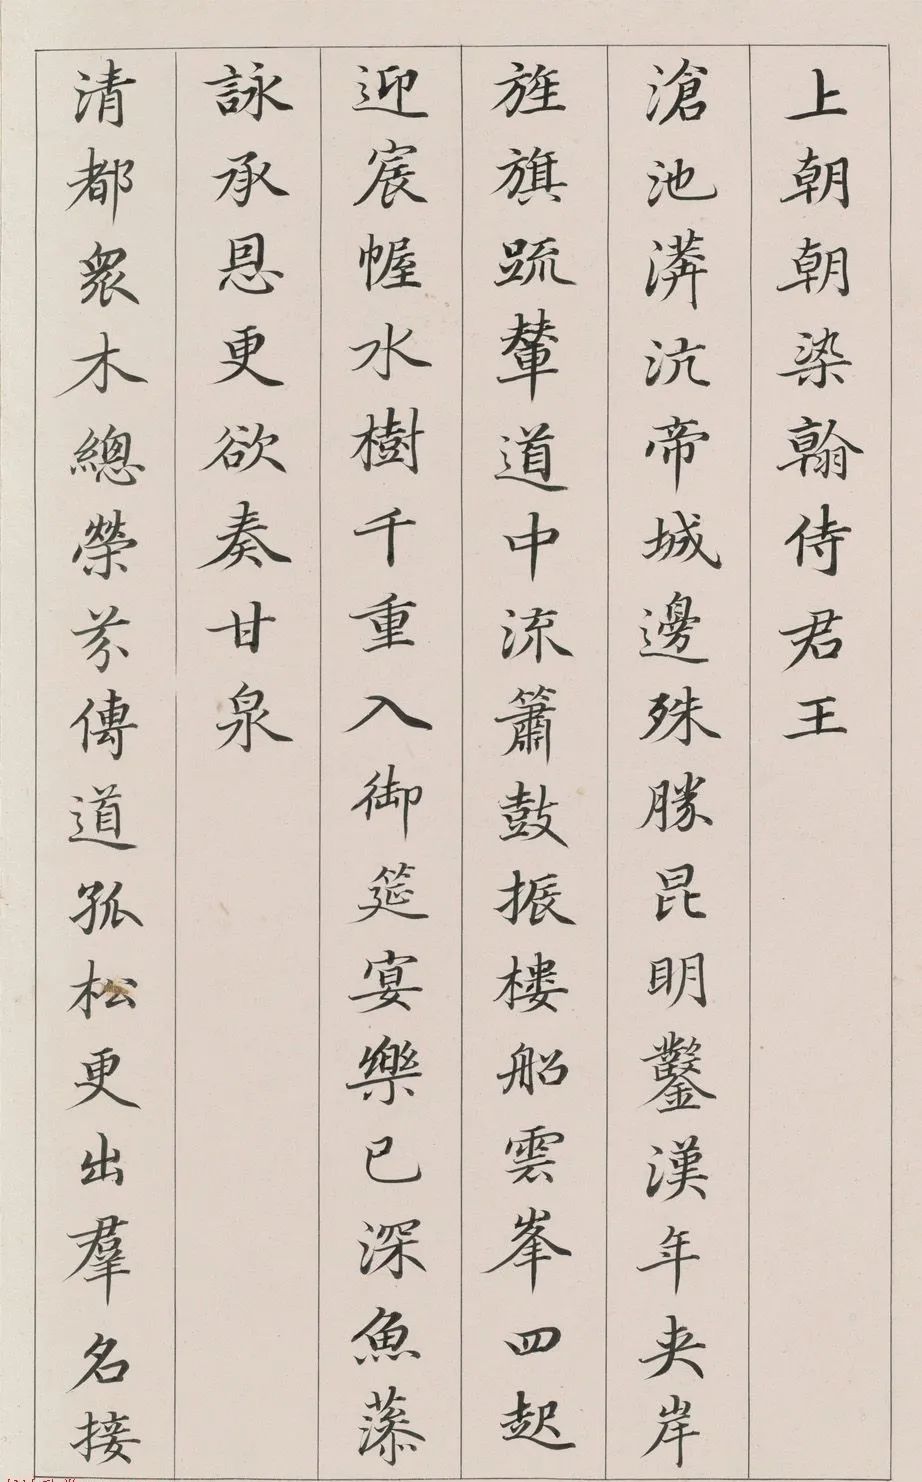 上朝朝染翰侍君王
滄池漭沆帝城邊殊勝昆明鑿漢年夾岸
旌旗䟽輦道中流簫鼓振楼船雲峯四起
迎宸幄水樹千重入御筵宴樂已深魚藻
詠承恩更欲奏甘泉
清都衆木總榮芬傳道孤松更出羣名接